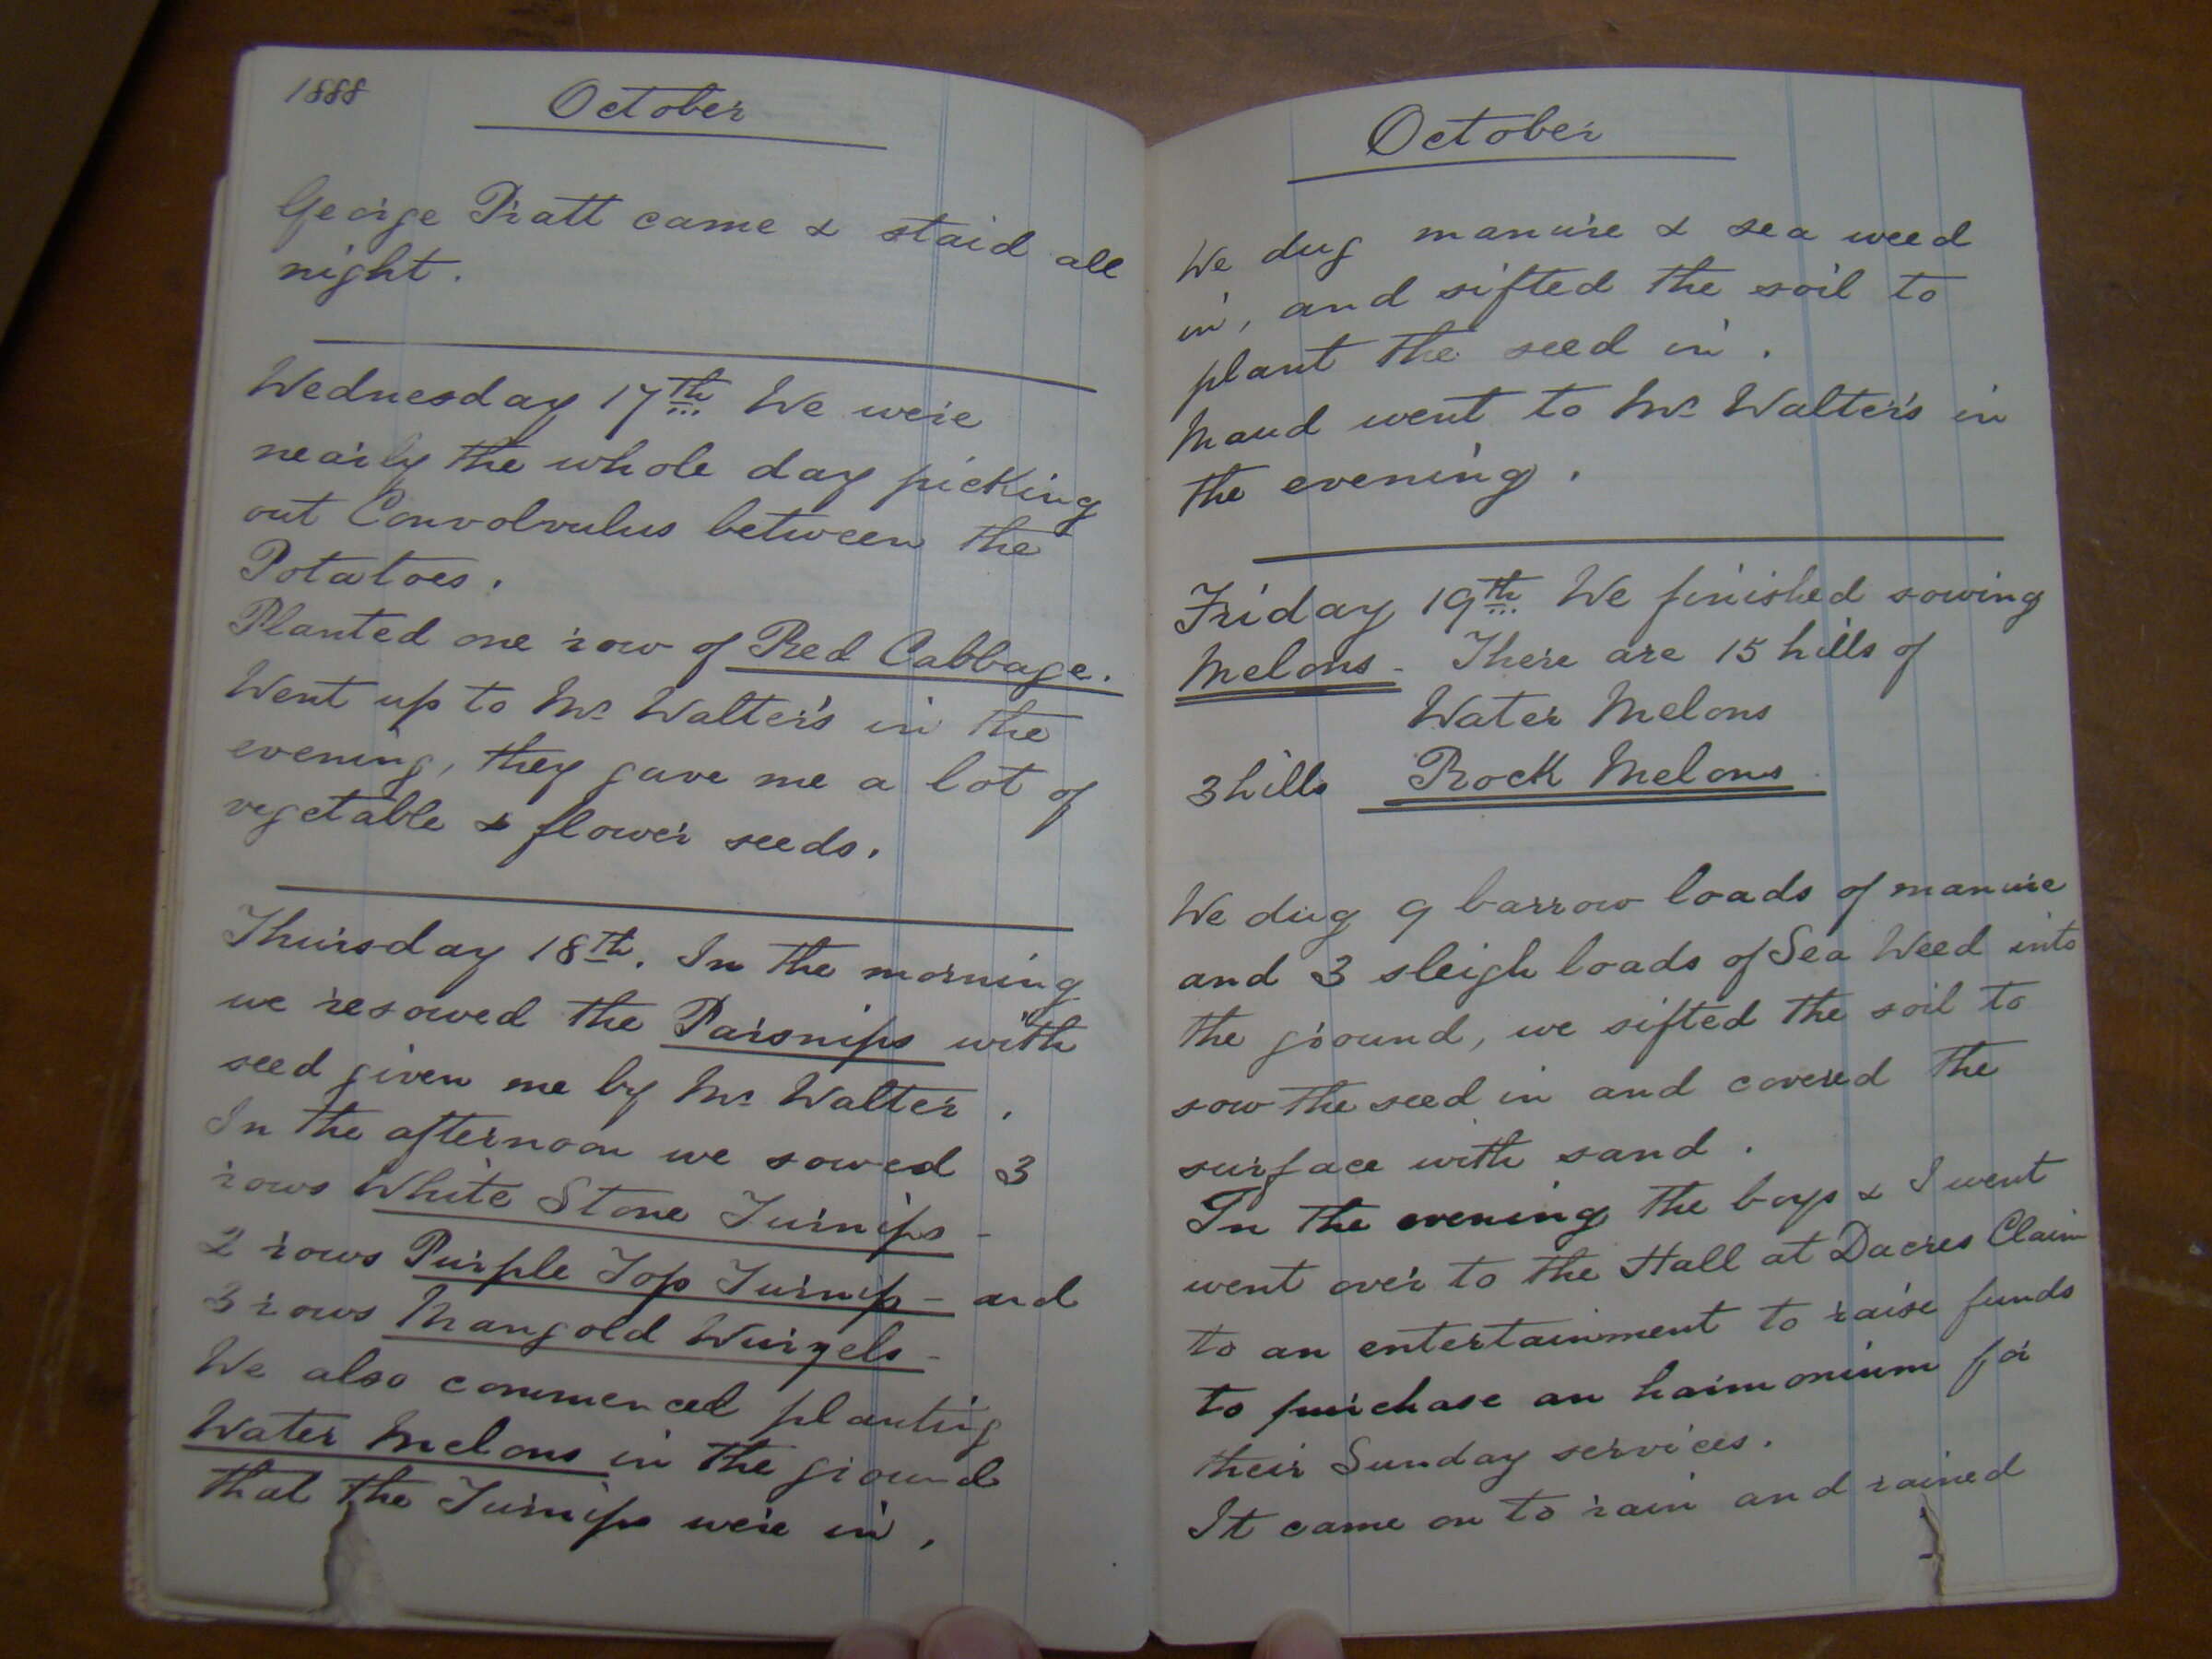 1888
October
George Pratt came & staid all
night.
Wednesday 17th We were
nearly the whole day picking
out Convolvulus between the
Potatoes.
Planted one row of Red Cabbage.
Went up to Mr Walter's in the
evening, they gave me a lot of
vegetable & flower seeds.
Thursday 18th. In the morning
we resowed the Parsnips with
seed given me by Mr Walter.
In the afternoon we sowed 3
rows White Stone Turnips -
2 rows Purple Top Turnip - and
3 rows Mangold Wurzels -
We also commenced planting
Water Melons in the ground
that the Turnips were in,
October
We dug manure & sea weed
in, and sifted the soil to
plant the seed in.
Maud went to Mr Walter's in
the evening.
Friday 19th We finished sowing
Melons - There are 15 hills of
Water Melons
3 hills Rock Melons
We dug 9 barrow loads of manure
and 3 sleigh loads of Sea Weed into
the ground, we sifted the soil to
sow the seed in and covered the
surface with sand.
In the evening the boys & I went
went over to the Hall at Dacres Claim
to an entertainment to raise funds
to purchase an harmonium for
their Sunday services.
It came on to rain and rained